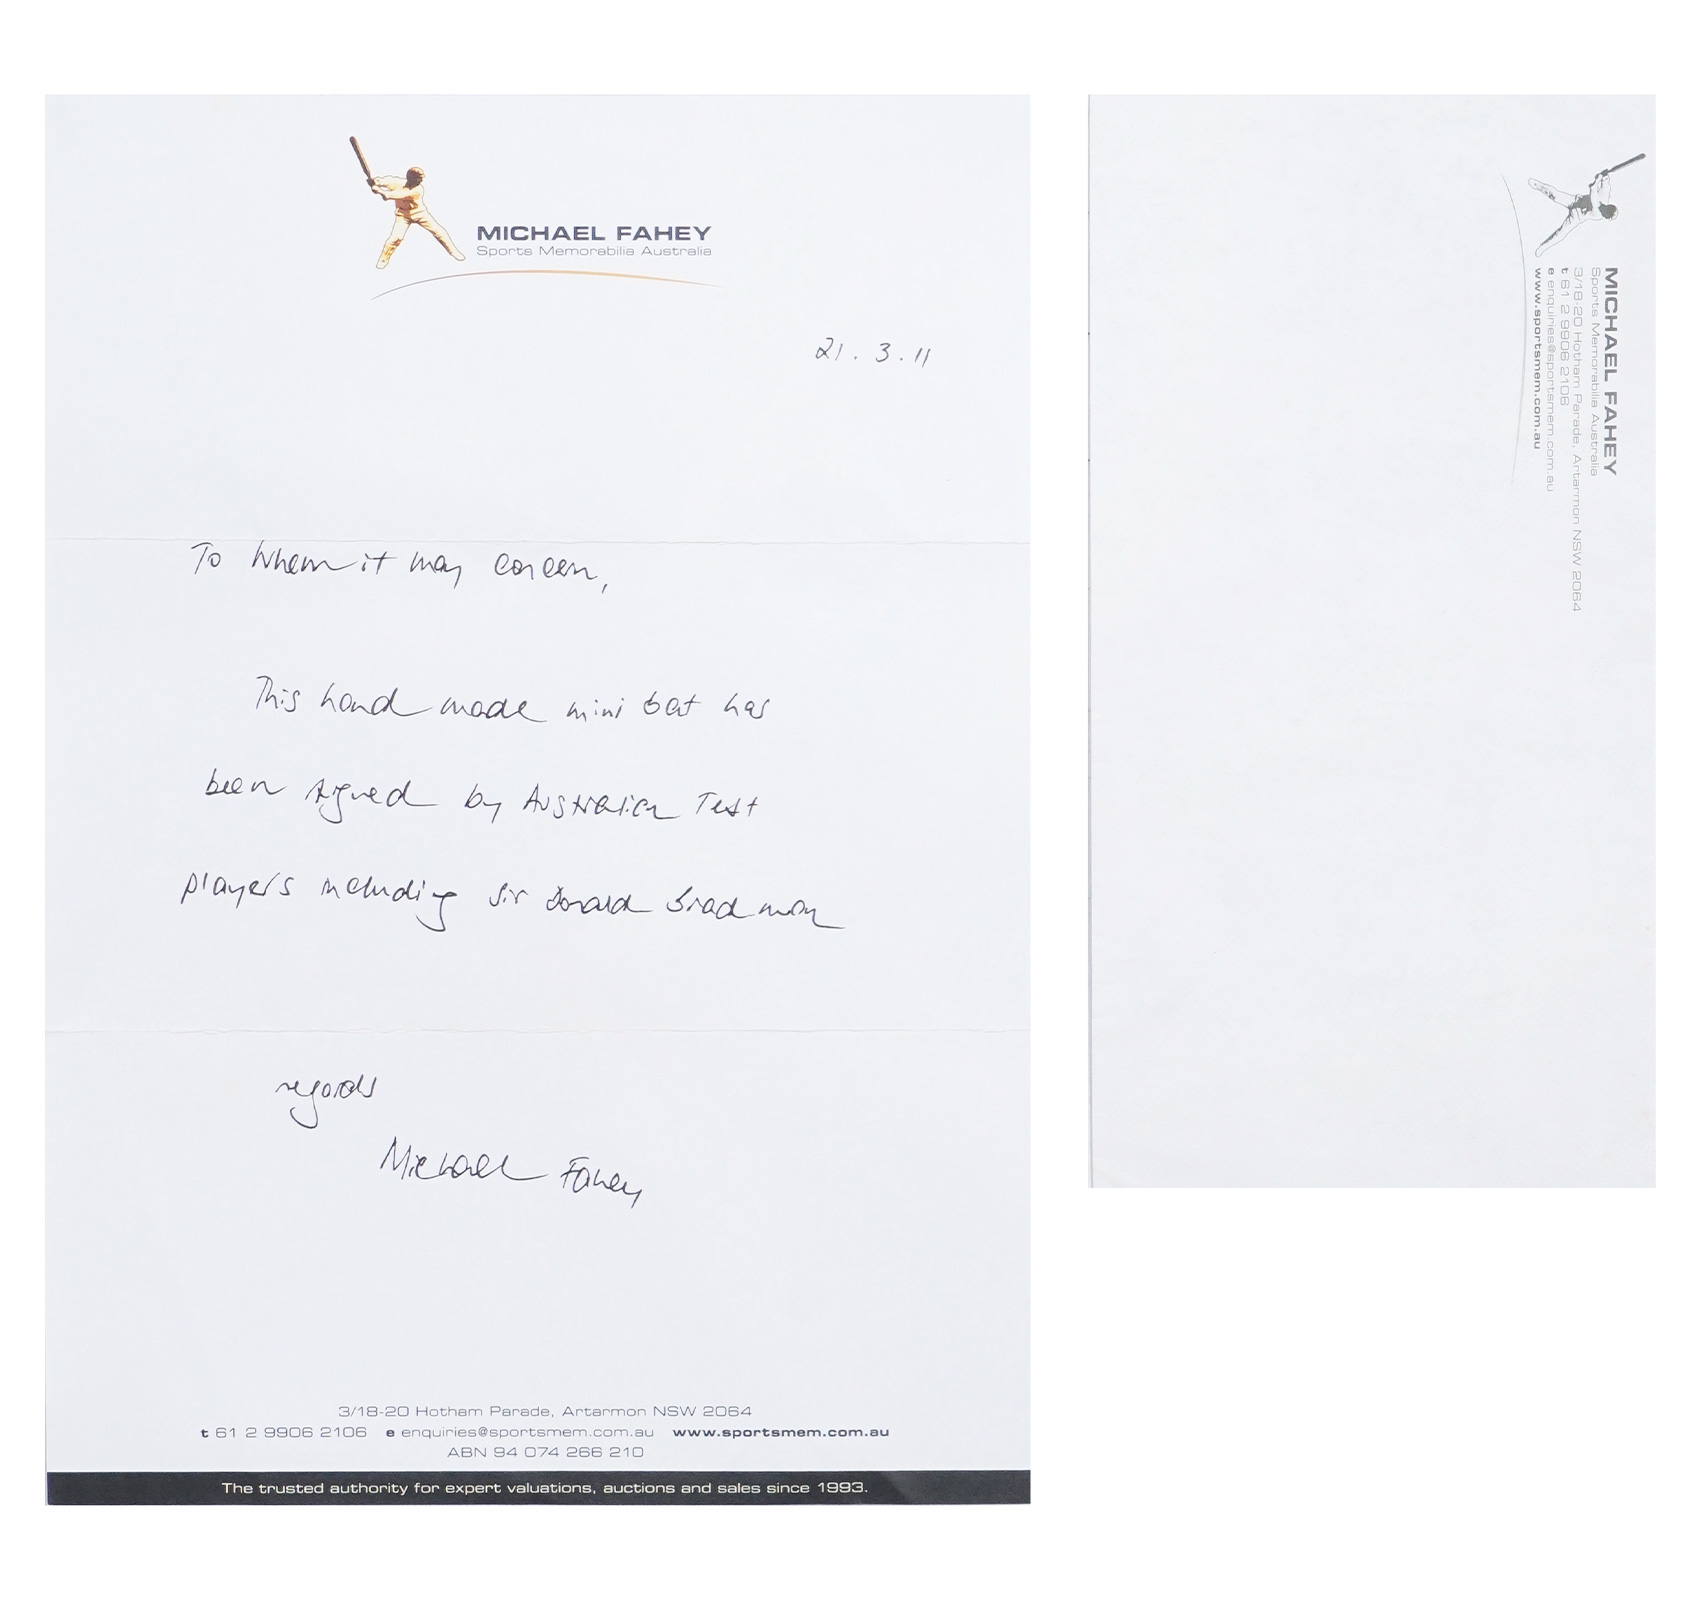 MICHAEL FAHEY
Sports Memorabilia Australia
21.3.11
To Whom it may concern,
This hand made mini bat has
been signed by Australian Test
players including Sir Donald Bradman
regards
Michael Fahey
3/18-20 Hotham Parade, Artarmon NSW 2064
t 61 2 9906 2106 e enquiries@sportsmem.com.au www.sportsmem.com.au
ABN 94 074 266 210
The trusted authority for expert valuations, auctions and sales since 1993.
MICHAEL FAHEY
Sports Memorabilia Australia
3/18-20 Hotham Parade, Artarmon NSW 2064
t 61 2 9906 2106
e enquiries@sportsmem.com.au
www.sportsmem.com.au